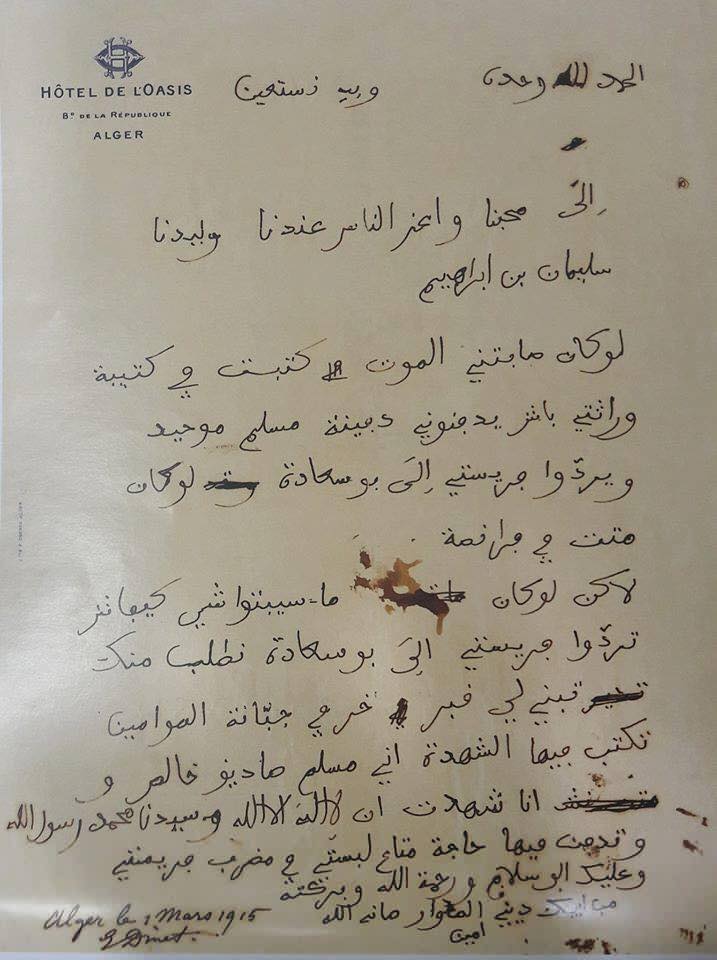 HÔTEL DE L'OASIS
Bd DE LA RÉPUBLIQUE
ALGER
الحمد لله وحده وبيه نستعين
إلَى محبنا واعز الناس عندنا وليدنا
سليمان بن ابراهيم
لوكان صابتني الموت كتبت في كتيبة
وراثتي باش يدفنوني دفينة مسلم موحيد
ويردّوا جريستي إلَى بوسعادة لوكان
متت في فرافصة
لاكن لوكان ما-سيبتوا شي كيفانش
تردّوا جريستي إلَى بوسعادة نطلب منك
تبني لي قبر خر في جبّانة الموامين
تكتب فيها الشهدة اني مسلم صاديق خالص و
انا شهدت ان لا اله الا الله وسيدنا محمد رسول الله
وتدفن فيها حاجة متاع لبستي في مضرب جريستي
وعليك ابوسلام ورحمة الله وبركته
ديني الله
امين
Alger le 1 Mars 1915
E Dinet